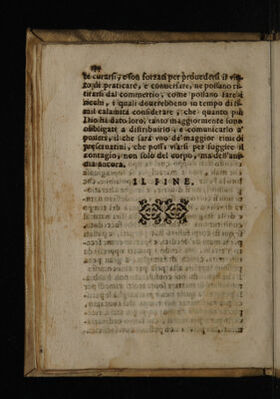 te curarsi, e son forzati per prouedersi il vit-
to, di praticare, e conuersare, ne possano ri-
tirarsi dal commertio, come possano fare i
ricchi, i quali dourebbeno in tempo di si-
mil calamità considerare, che quanto più
Dio hà dato loro, tanto maggiormente sono
obligati a distribuirlo, e comunicarlo a'
poueri, il che sarà vno de' maggior rimedi
preseruatiui, che possa vsarsi per fuggire il
contagio, non solo del corpo, ma dell'ani-
ma ancora.
IL FINE.